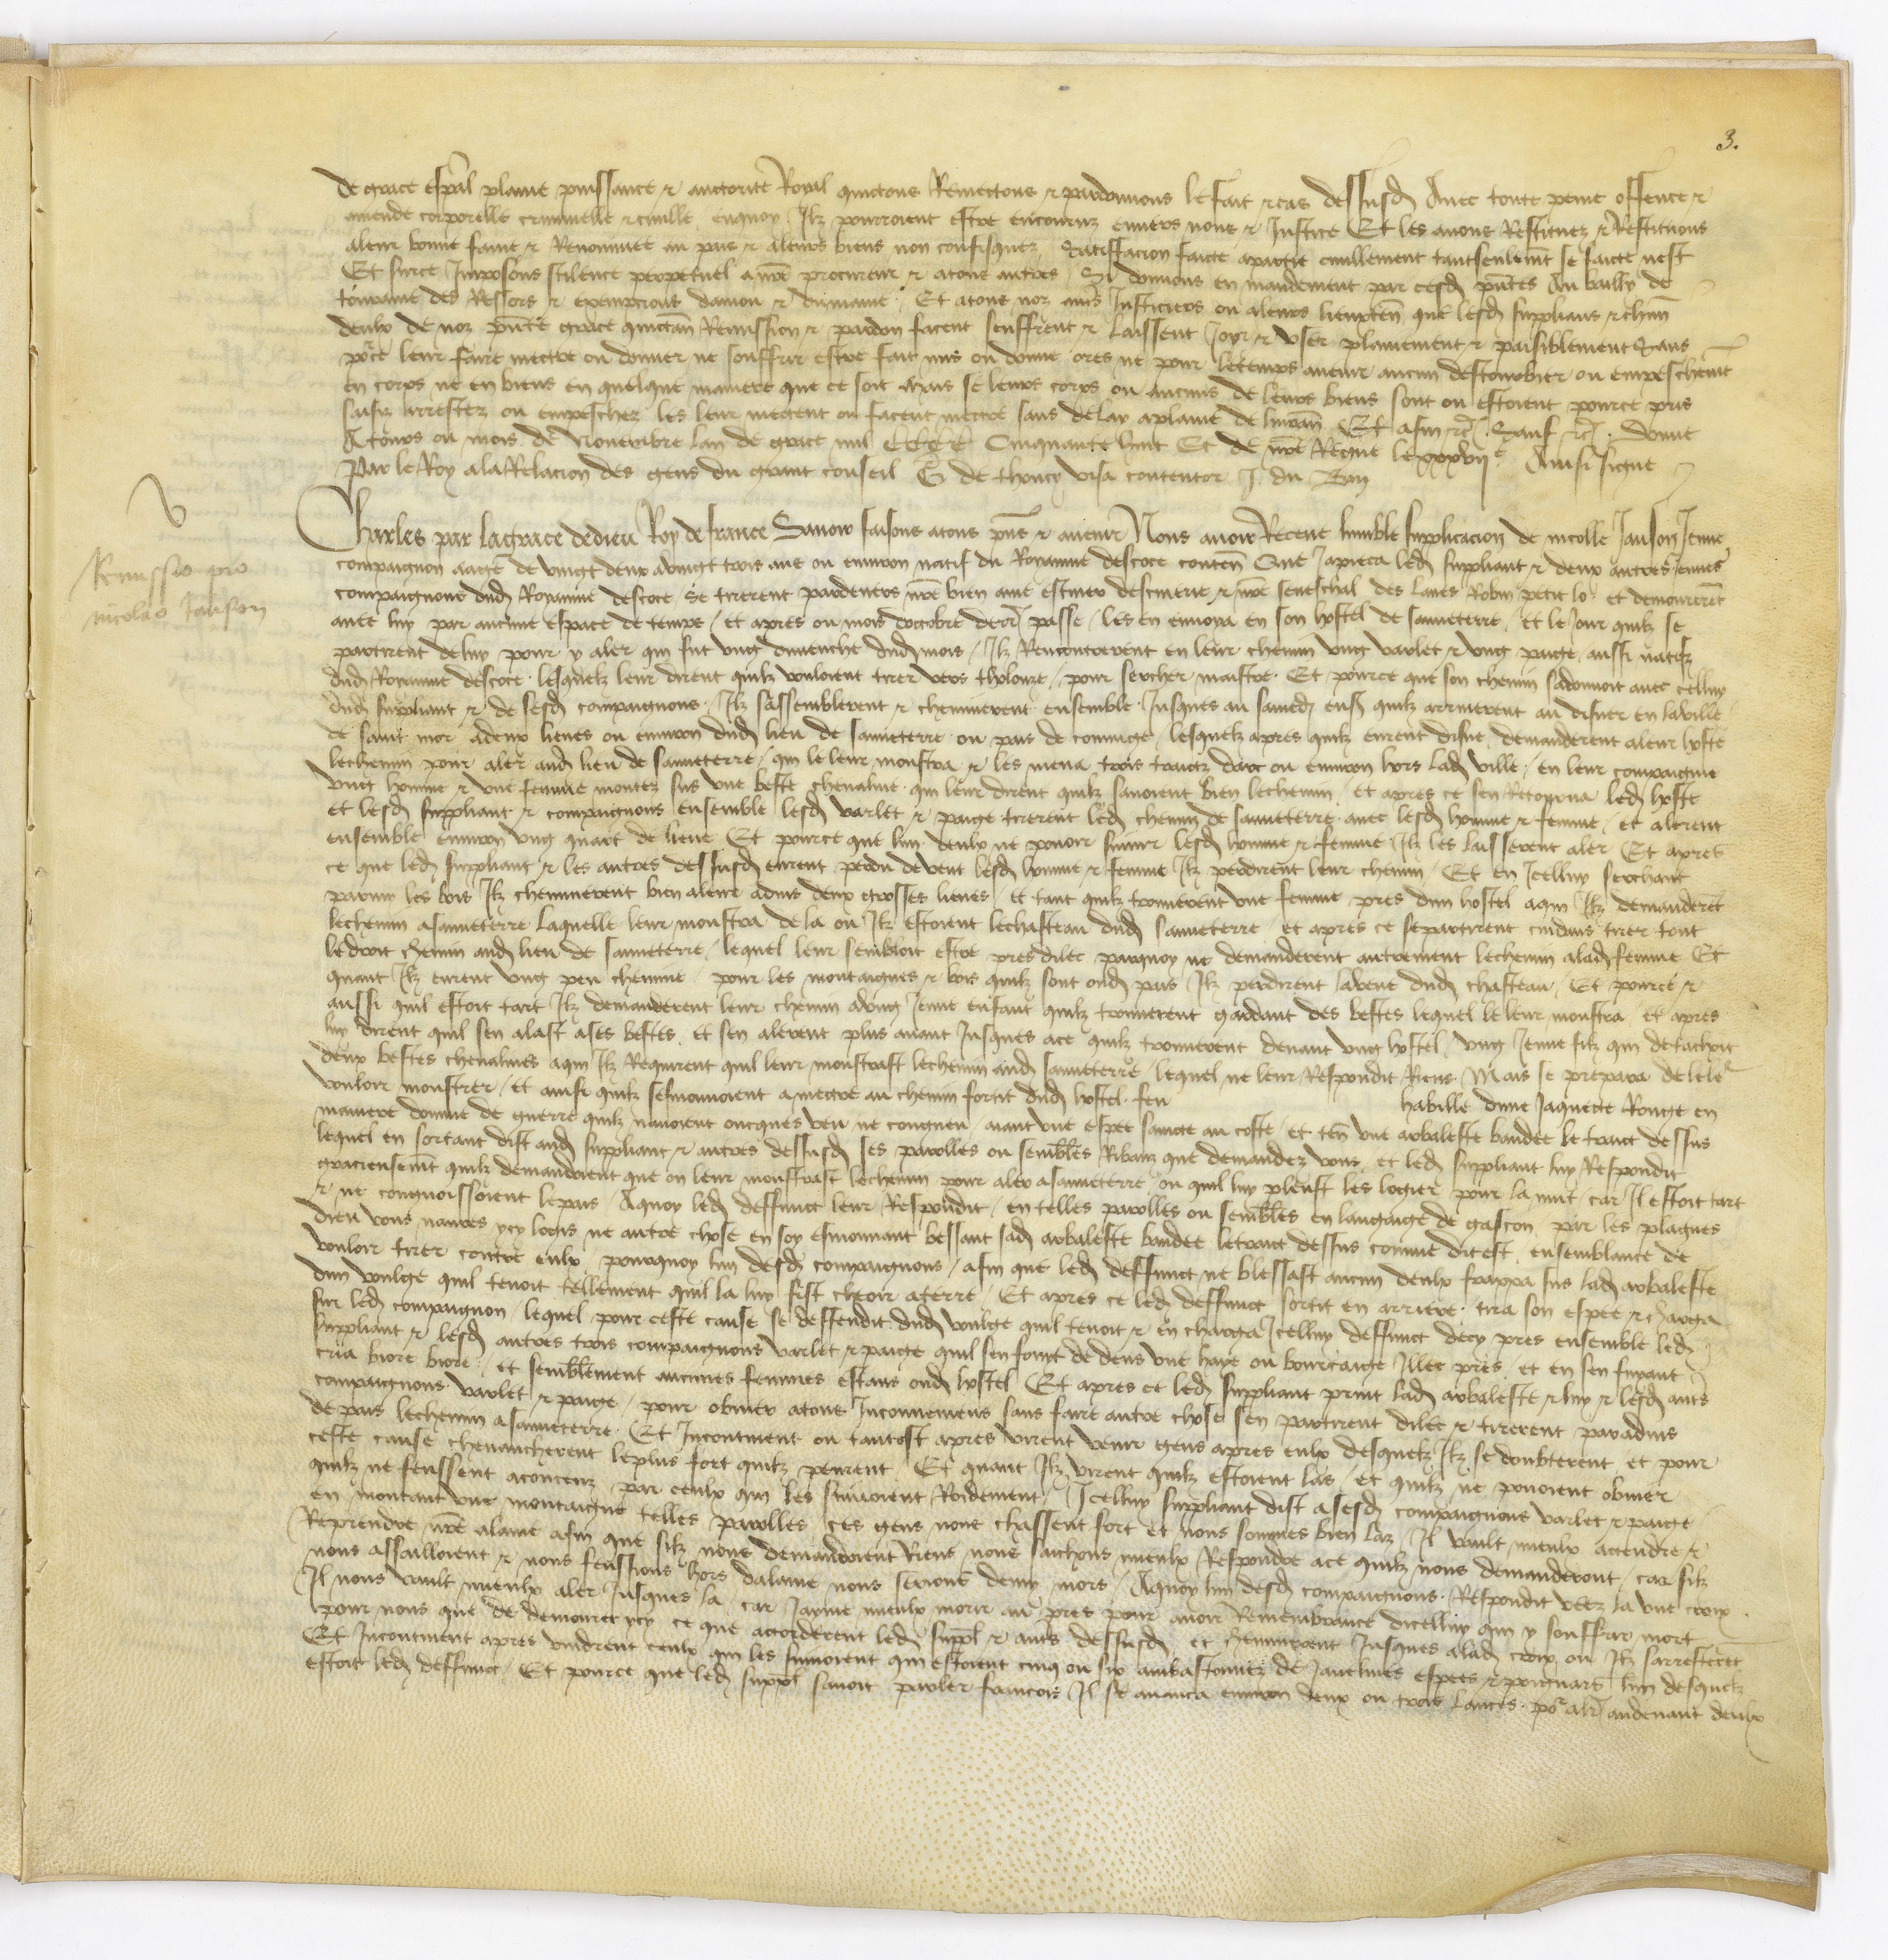 3.
de grace esp̄al plaine puissance & auctorite Royal quictons Remectons & pardonnons le fait & cas dessusd Avec toute peine offence &
amende corporelle criminelle & civille enquoy Ilz pourroient estre encouruz envers nous & Justice Et les avons Restituez & Restituons
a leur bonne fame & Renommee au pais & a leurs biens non confisquez Satisfacion faicte a partie civillement tant seulemt se faicte nest
Et surce Imposons scilence perpetuel a nre procureur & a tous autres Si donnons en mandement par cesd pntes Au bailly de
touraine des Ressors & exempcions danjou & du maine Et a tous noz autres Justiciers ou a leurs lieuxten que lesd supplians & chun
deulx de noz pnte grace quictan Remission & pardon facent seuffrent & laissent Joyr & user plainement & paisiblement Sans
pource leur faire mectre ou donner ne souffrir estre fait mis ou donne ores ne pour le temps avenir aucun destourbier ou empeschemt
en corps ne en biens en quelque maniere que ce soit Mais se leurs corps ou aucuns de leurs biens sont ou estoient pource pris
saisiz arrestez ou empeschez les leur mectent ou facent mectre sans delay a plaine delivran Et afin &c Sauf &c Donne
A tours ou mois de Novembre lan de grace mil cccc Cinquante huit Et de nre Regne le xxxvije Ainsi signe
Par le Roy a la Relacion des gens du grant conseil E de thoucy visa contentor J du Ban
Remissio pro
nicolao Janson
Charles par la grace de dieu Roy de france Savoir faisons a tous pns & avenir Nous avoir Receue humble supplicacion de nicolle Janson Jeune
compaignon aage de vingt deux a vingt trois ans ou environ natif du Royaume descoce conten Que Japieca led suppliant & deux autres Jeunes
compaignons dud Royaume descoce se tirerent pardevers nre bien ame escuier descuierie & nre seneschal des lanes Robin petit lo et demourerent
avec luy par aucune espace de temps et apres ou mois doctobre derr passe les en envoya en son hostel de sauveterre Et le Jour quilz se
partirent de luy pour y aler qui fut ung dimenche dud mois Ilz Rencontrerent en leur chemin ung varlet & ung paige aussi natifz
dud Royaume descoce lesquelz leur dirent quilz vouloient tirer vers tholouze pour sercher maistre Et pource que son chemin sadonnoit avec celluy
dud suppliant & de sesd compaignons Ilz sassemblerent & cheminerent ensemble Jusques au samedi ens quilz arriverent au disner en la ville
de saint mor a deux lieues ou environ dud lieu de sauveterre ou pais de commige lesquelz apres quilz eurent disne demanderent a leur hoste
le chemin pour aler aud lieu de sauveterre qui le leur monstra & les mena trois traictz darc ou environ hors lad ville en leur compaignie
ung homme & une femme montez sus une beste chevaline qui leur dirent quilz savoient bien le chemin et apres ce sen Retourna led hoste
et lesd suppliant & compaignons ensemble lesd varlet & paige tirerent led chemin de sauveterre avec lesd homme & femme et alerent
ensemble environ ung quart de lieue Et pource que lun deulx ne povoit suivir lesd homme & femme Ilz les laisserent aler Et apres
ce que led suppliant & les autres dessusd eurent perdu de veut lesd homme & femme Ilz perdirent leur chemin Et en Icelluy serchant
parmy les bois Ilz cheminerent bien a leure a dius deux grosses lieues et tant quilz trouverent une femme pres dun hostel a qui Ilz demanderent
le chemin a sauveterre Laquelle leur monstra de la ou Ilz estoient le chasteau dud sauveterre et apres ce se partirent cuidans tirer tout
le droit chemin aud lieu de sauveterre lequel leur sembloit estre pres dilec parquoy ne demanderent autrement le chemin a lad femme Et
quant Ilz eurent ung peu chemine pour les montaignes & bois quilz sont oud pais Ilz perdirent la veue dud chasteau Et pource &
aussi quil estoit tart Ilz demanderent leur chemin a ung Jeune enfant quilz trouverent gardant des bestes lequel le leur monstra et apres
luy dirent quil sen alast a ses bestes et sen alerent plus avant Jusques a ce quilz trouverent devant ung hostel ung Jeune filz qui detachoit
deux bestes chevalines a qui Ilz Requirent quil leur monstrast le chemin aud sauveterre lequel ne leur Respondit Riens Mais se prepara de le le
vouloir monstrer et ainsi quilz sesmouvoient a mectre au chemin sortit dud hostel feu habille dune Jaquecte Rouge en
maniere domme de guerre quilz navoient oncques veu ne congneu aiant une espee saincte au coste et ten une arbaleste bandee le traict dessus
lequel en sortant dist aud suppliant & autres dessusd ses parolles ou sembles Ribaux que demandez vous et led suppliant luy Respondit
gracieusemt quilz demandoient que on leur monstrast le chemin pour aler a sauveterre ou quil luy pleust les logier pour la nuit car Il estoit tart
& ne congnoissoient le pais A quoy led deffunct leur Respondit en telles parolles ou sembles en langaige de gascon par les plagues
dieu vous naures ycy logis ne autre chose en soy esmouvant bessant sad arbaleste bandee le traict dessus comme dit est ensemblance de
vouloir tirer contre eulx pourquoy lun desd compaignons afin que led deffunct ne blessast aucun deulx frappa sus lad arbaleste
dun voulge quil tenoit tellement quil la luy fist cheoir a terre Et apres ce led deffunct sortit en arriere tira son espee & charga
sur led compaignon lequel pour ceste cause se deffendit dud voulge quil tenoit & en charga Icelluy deffunct decy pres ensemble led
suppliant & lesd autres trois compaignons varlet & paige quil sen fouyt de dens une haye ou bourcaige Illec pres et en sen fuyant
cria biore biore et semblement aucunes femmes estans oud hostel Et apres ce led suppliant print lad arbaleste & luy & lesd auts
compaignons varlet & paige pour obvier a tous Inconveniens sans faire autre chose sen partirent dilec & tirerent paradius
de pais le chemin a sauveterre Et Incontinent ou tantost apres virent venir gens apres eulx desquelz Ilz se doubterent et pour
ceste cause chevaucherent le plus fort quilz peurent Et quant Ilz virent quilz estoient las et quilz ne povoient obvier
quilz ne feussent aconceuz par ceulx qui les suivoient Roidement Icelluy suppliant dist a sesd compaignons varlet & paige
en montant une montaigne telles parolles ces gens nous chassent fort et nous sommes bien laz Il vault mieulx actendre &
Reprendre nre alaine afin que silz nous demandoient Riens nous saichons mieulx Respondre a ce quilz nous demanderont car silz
nous assailloient & nous feussions hors dalaine nous serions demy mors A quoy lun desd compaignons Respondit veez la une croix
Il nous vault mieulx aler Jusques la car Jayme mieulx morir au pres pour avoir Remembrance dicelluy qui y souffrir mort
pour nous que de demourer ycy ce que accorderent led suppl & auts dessusd et cheminerent Jusques a lad croix ou Ilz sarresterent
Et Incontinent apres vindrent ceulx qui les suivoient qui estoient cinq ou six embastonnez de Javelines espees & poignars lun desquelz
estoit led deffunct Et pource que led suppl savoit parler francois Il se avanca environ deux ou trois lances por aler audevant deulx